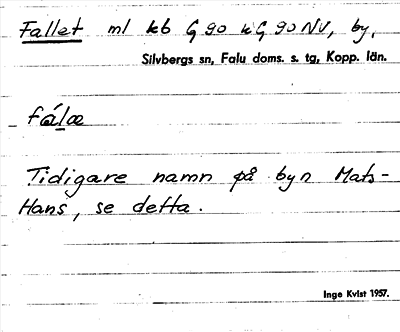 Fallet ml kb G 90 k G 90 NV, by,
Silvbergs sn, Falu doms. s. tg, Kopp. län.
fálæ
Tidigare namn på byn Mats-
Hans, se detta.
Inge Kvist 1957.